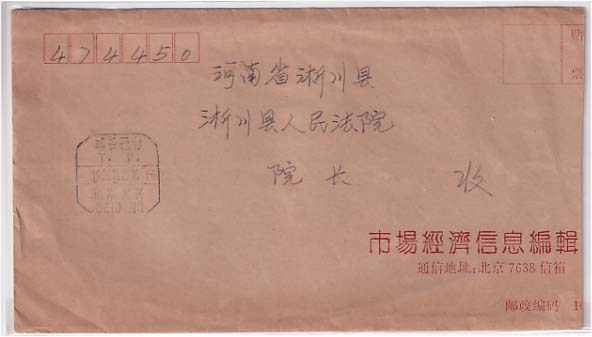 474450
河南省淅川县
淅川县人民法院
院长 收
市場經濟信息編輯
通信地址:北京 7638 信箱
邮政编码 1